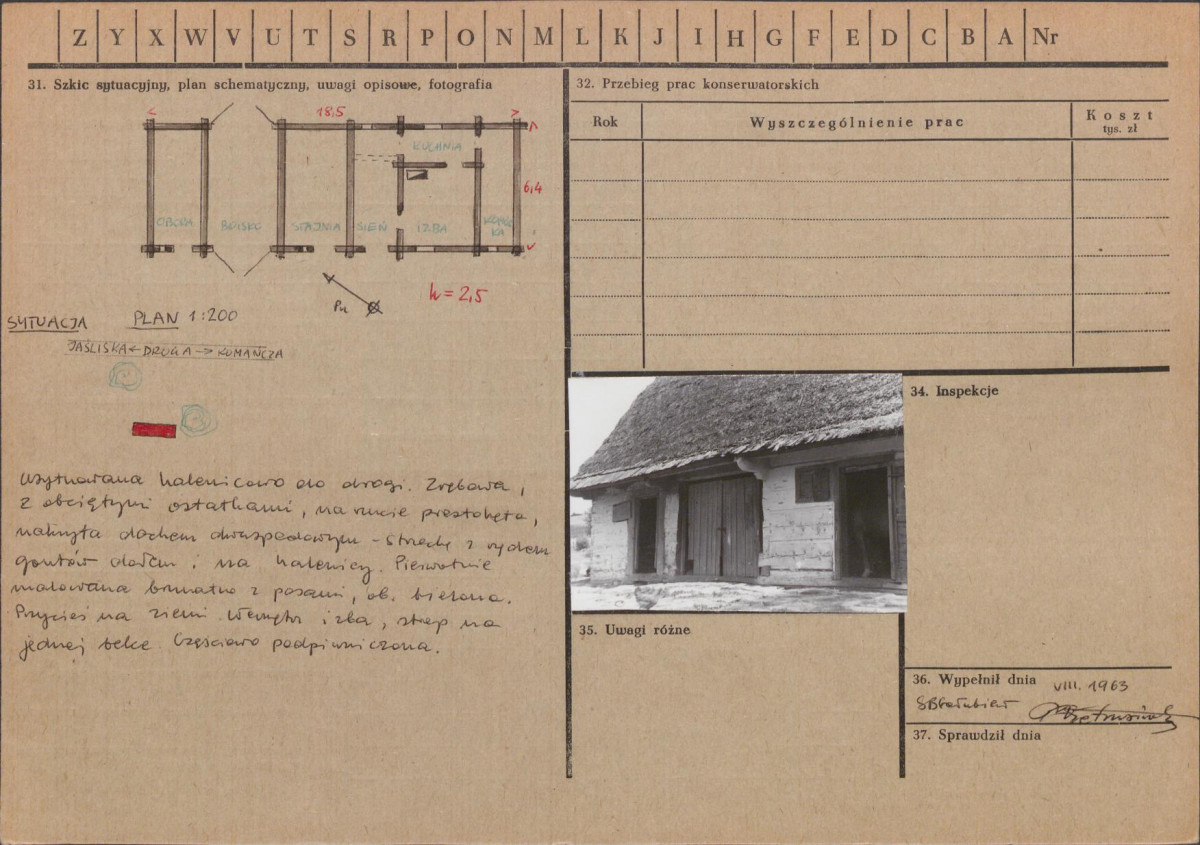 Z Y X W V U T S R P O N M L K J I H G F E D C B A Nr
31. Szkic sytuacyjny, plan schematyczny, uwagi opisowe, fotografia
18,5
KUCHNIA
6,4
OBORA BOISKO STAJNIA SIEŃ IZBA KOMÓR
KA
h = 2,5
Pn
PLAN 1:200
SYTUACJA
JAŚLISKA ← DROGA → KOMAŃCZA
Usytuowana kalenicowo do drogi. Zrębowa,
z obciętymi ostatkami, na rzucie prostokąta,
nakryta dachem dwuspadowym - strzechą z rzędem
gontów dołem i na kalenicy. Pierwotnie
malowana brunatno z pasami, ob. bielona.
Przycieś na ziemi. Wewnątrz izba, strop na
jednej belce. Częściowo podpiwniczona.
32. Przebieg prac konserwatorskich
Rok Wyszczególnienie prac Koszt
tys. zł
34. Inspekcje
35. Uwagi różne
36. Wypełnił dnia
VIII. 1963
37. Sprawdził dnia